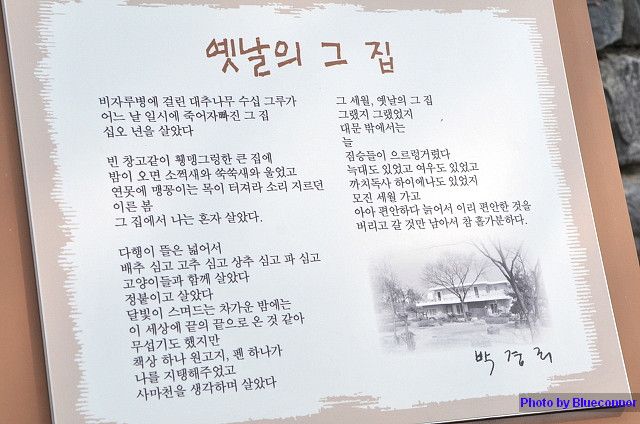 옛날의 그 집
비자루병에 걸린 대추나무 수십 그루가
어느 날 일시에 죽어자빠진 그 집
십오 년을 살았다
빈 창고같이 휑뎅그렁한 큰 집에
밤이 오면 소쩍새와 쑥쑥새와 울었고
연못에 맹꽁이는 목이 터져라 소리 지르던
이른 봄
그 집에서 나는 혼자 살았다.
다행이 뜰은 넓어서
배추 심고 고추 심고 상추 심고 파 심고
고양이들과 함께 살았다
정붙이고 살았다
달빛이 스며드는 차가운 밤에는
이 세상에 끝의 끝으로 온 것 같아
무섭기도 했지만
책상 하나 원고지, 펜 하나가
나를 지탱해주었고
사마천을 생각하며 살았다
그 세월, 옛날의 그 집
그랬지 그랬었지
대문 밖에서는
늘
짐승들이 으르렁거렸다
늑대도 있었고 여우도 있었고
까치독사 하이에나도 있었지
모진 세월 가고
아아 편안하다 늙어서 이리 편안한 것을
버리고 갈 것만 남아서 참 홀가분하다.
박경리
Photo by Blueconnor